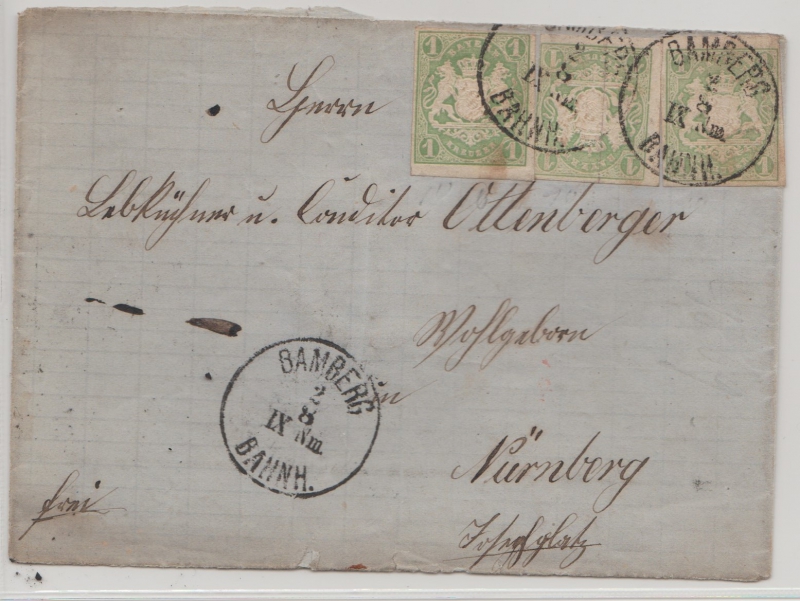 1 1
1 1
1 1
1 1
1
1
BAMBERG
2
8
IX Nm.
BAHNH.
BAMBERG
2
8
IX Nm.
BAHNH.
Herrn
Lebküchner u. Conditor Ottenberger
Wohlgeborn
in
Nürnberg
Josephplatz
frei
BAMBERG
2
8
IX Nm.
BAHNH.